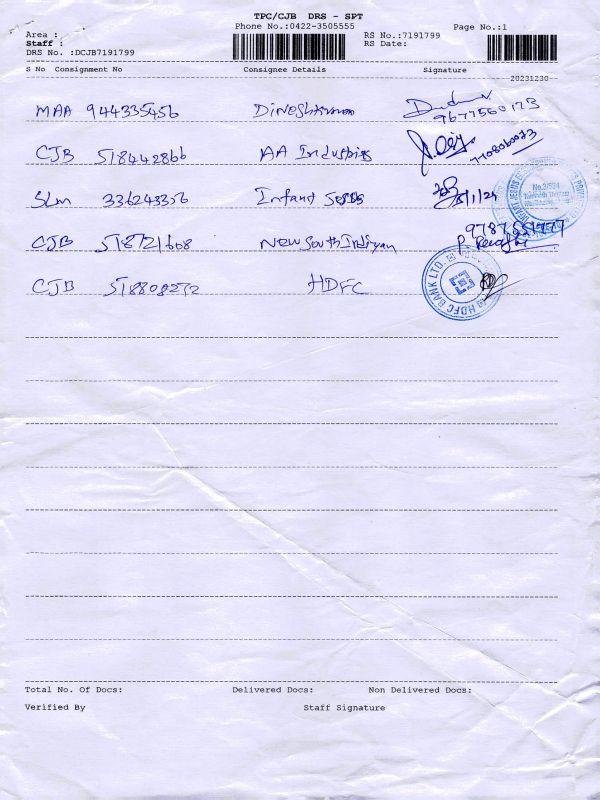 TPC/CJB DRS - SPT
Phone No.:0422-3505555
Page No.:1
Area :
Staff :
DRS No. :DCJB7191799
RS No.:7191799
RS Date:
S No Consignment No Consignee Details Signature
20231230
MAA 944335456 Dineshkumar
9677560173
CJB 518442866 AA Industries
7708060073
SLM 336243356 Infant
5/1/24
CJB 518721608 New South Indiyan
9787551777
CJB 518808272 HDFC
HDFC BANK LTD.
Total No. Of Docs: Delivered Docs: Non Delivered Docs:
Verified By Staff Signature